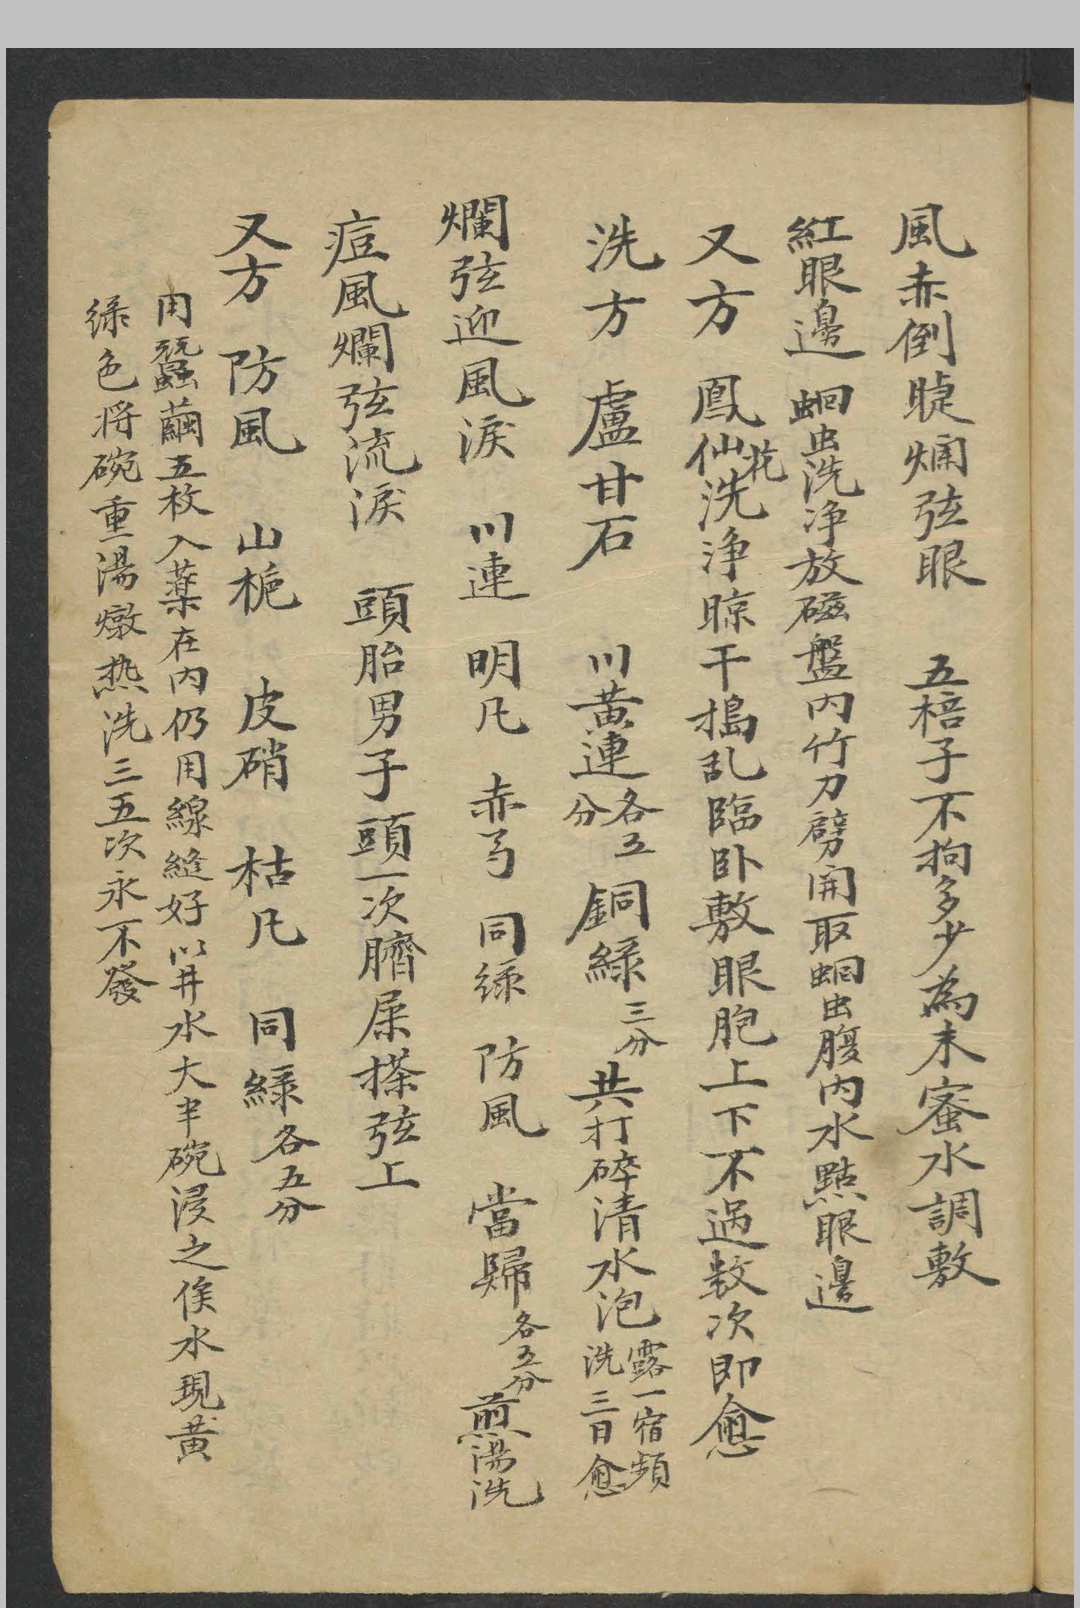 風赤倒睫爛弦眼　五棓子不拘多少為末蜜水調敷
紅眼邊　蛔虫洗净放磁盤内竹刀劈開取蛔虫腹内水點眼邊
又方　鳳仙花洗净晾干搗乱臨卧敷眼胞上下不過数次即愈
洗方　盧甘石　川黄連各五分　銅緑三分　共打碎清水泡露一宿頻洗三日愈
爛弦迎風淚　川連　明凡　赤芍　同緑　防風　當歸各五分　煎湯洗
痘風爛弦流淚　頭胎男子頭一次臍屎搽弦上
又方　防風　山梔　皮硝　枯凡　同緑各五分
用蠶繭五枚入薬在内仍用線縫好以井水大半碗浸之俟水現黄
緑色将碗重湯燉热洗三五次永不發